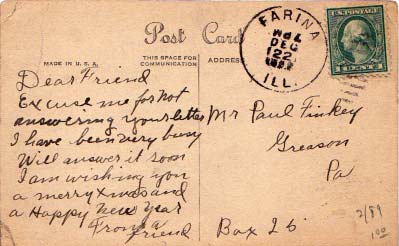 Post Card
MADE IN U. S. A.
THIS SPACE FOR
COMMUNICATION
ADDRESS
FARINA
DEC
22
ILL.
U.S. POSTAGE
1 CENT 1
Dear Friend
Excuse me for not
answering your letter
I have been very busy
Will answer it soon
I am wishing you
a merry Xmas and
a Happy New Year
From a
friend
Mr Paul Finkey
Greason
Pa
Box 26
2/89
1.00